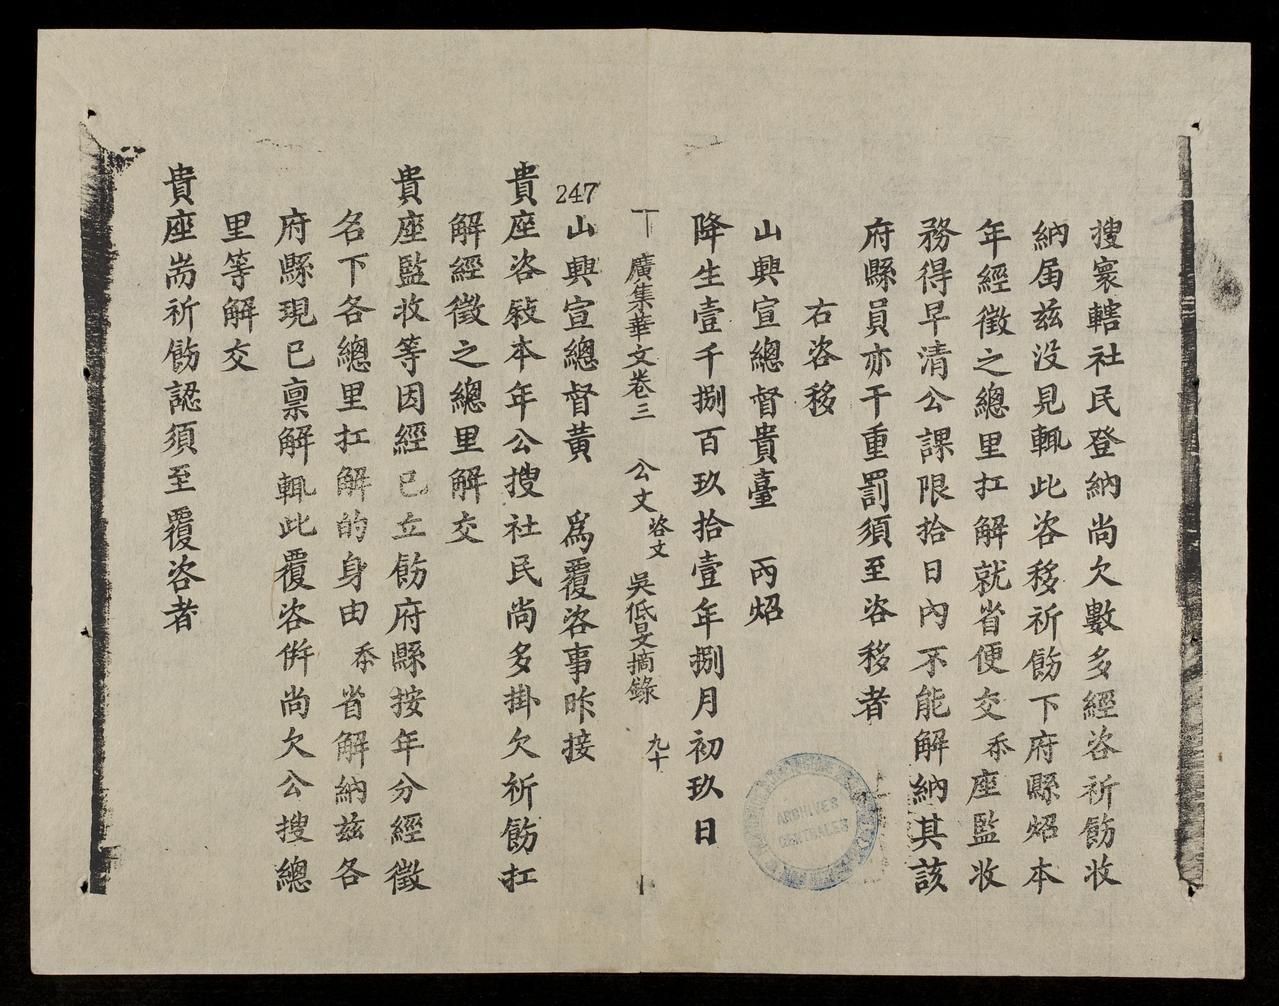 搜寰轄社民登納尚欠數多經咨祈飭收
納届兹没見輒此咨移祈飭下府縣炤本
年經徵之總里扛解就省便交乑座監收
務得早清公課限拾日内不能解納其該
府縣員亦干重罰須至咨移者
右咨移
山興宣總督貴臺 丙炤
降生壹千捌百玖拾壹年捌月初玖日
廣集華文卷三 公文 咨文 吳低旻摘錄 九十
247
山興宣總督黄 爲覆咨事昨接
貴座咨敍本年公搜社民尚多掛欠祈飭扛
解經徵之總里解交
貴座監收等因經已立飭府縣按年分經徵
名下各總里扛解的身由乑省解納兹各
府縣現已禀解輒此覆咨倂尚欠公搜總
里等解交
貴座耑祈飭認須至覆咨者
ARCHIVES
CENTRALES